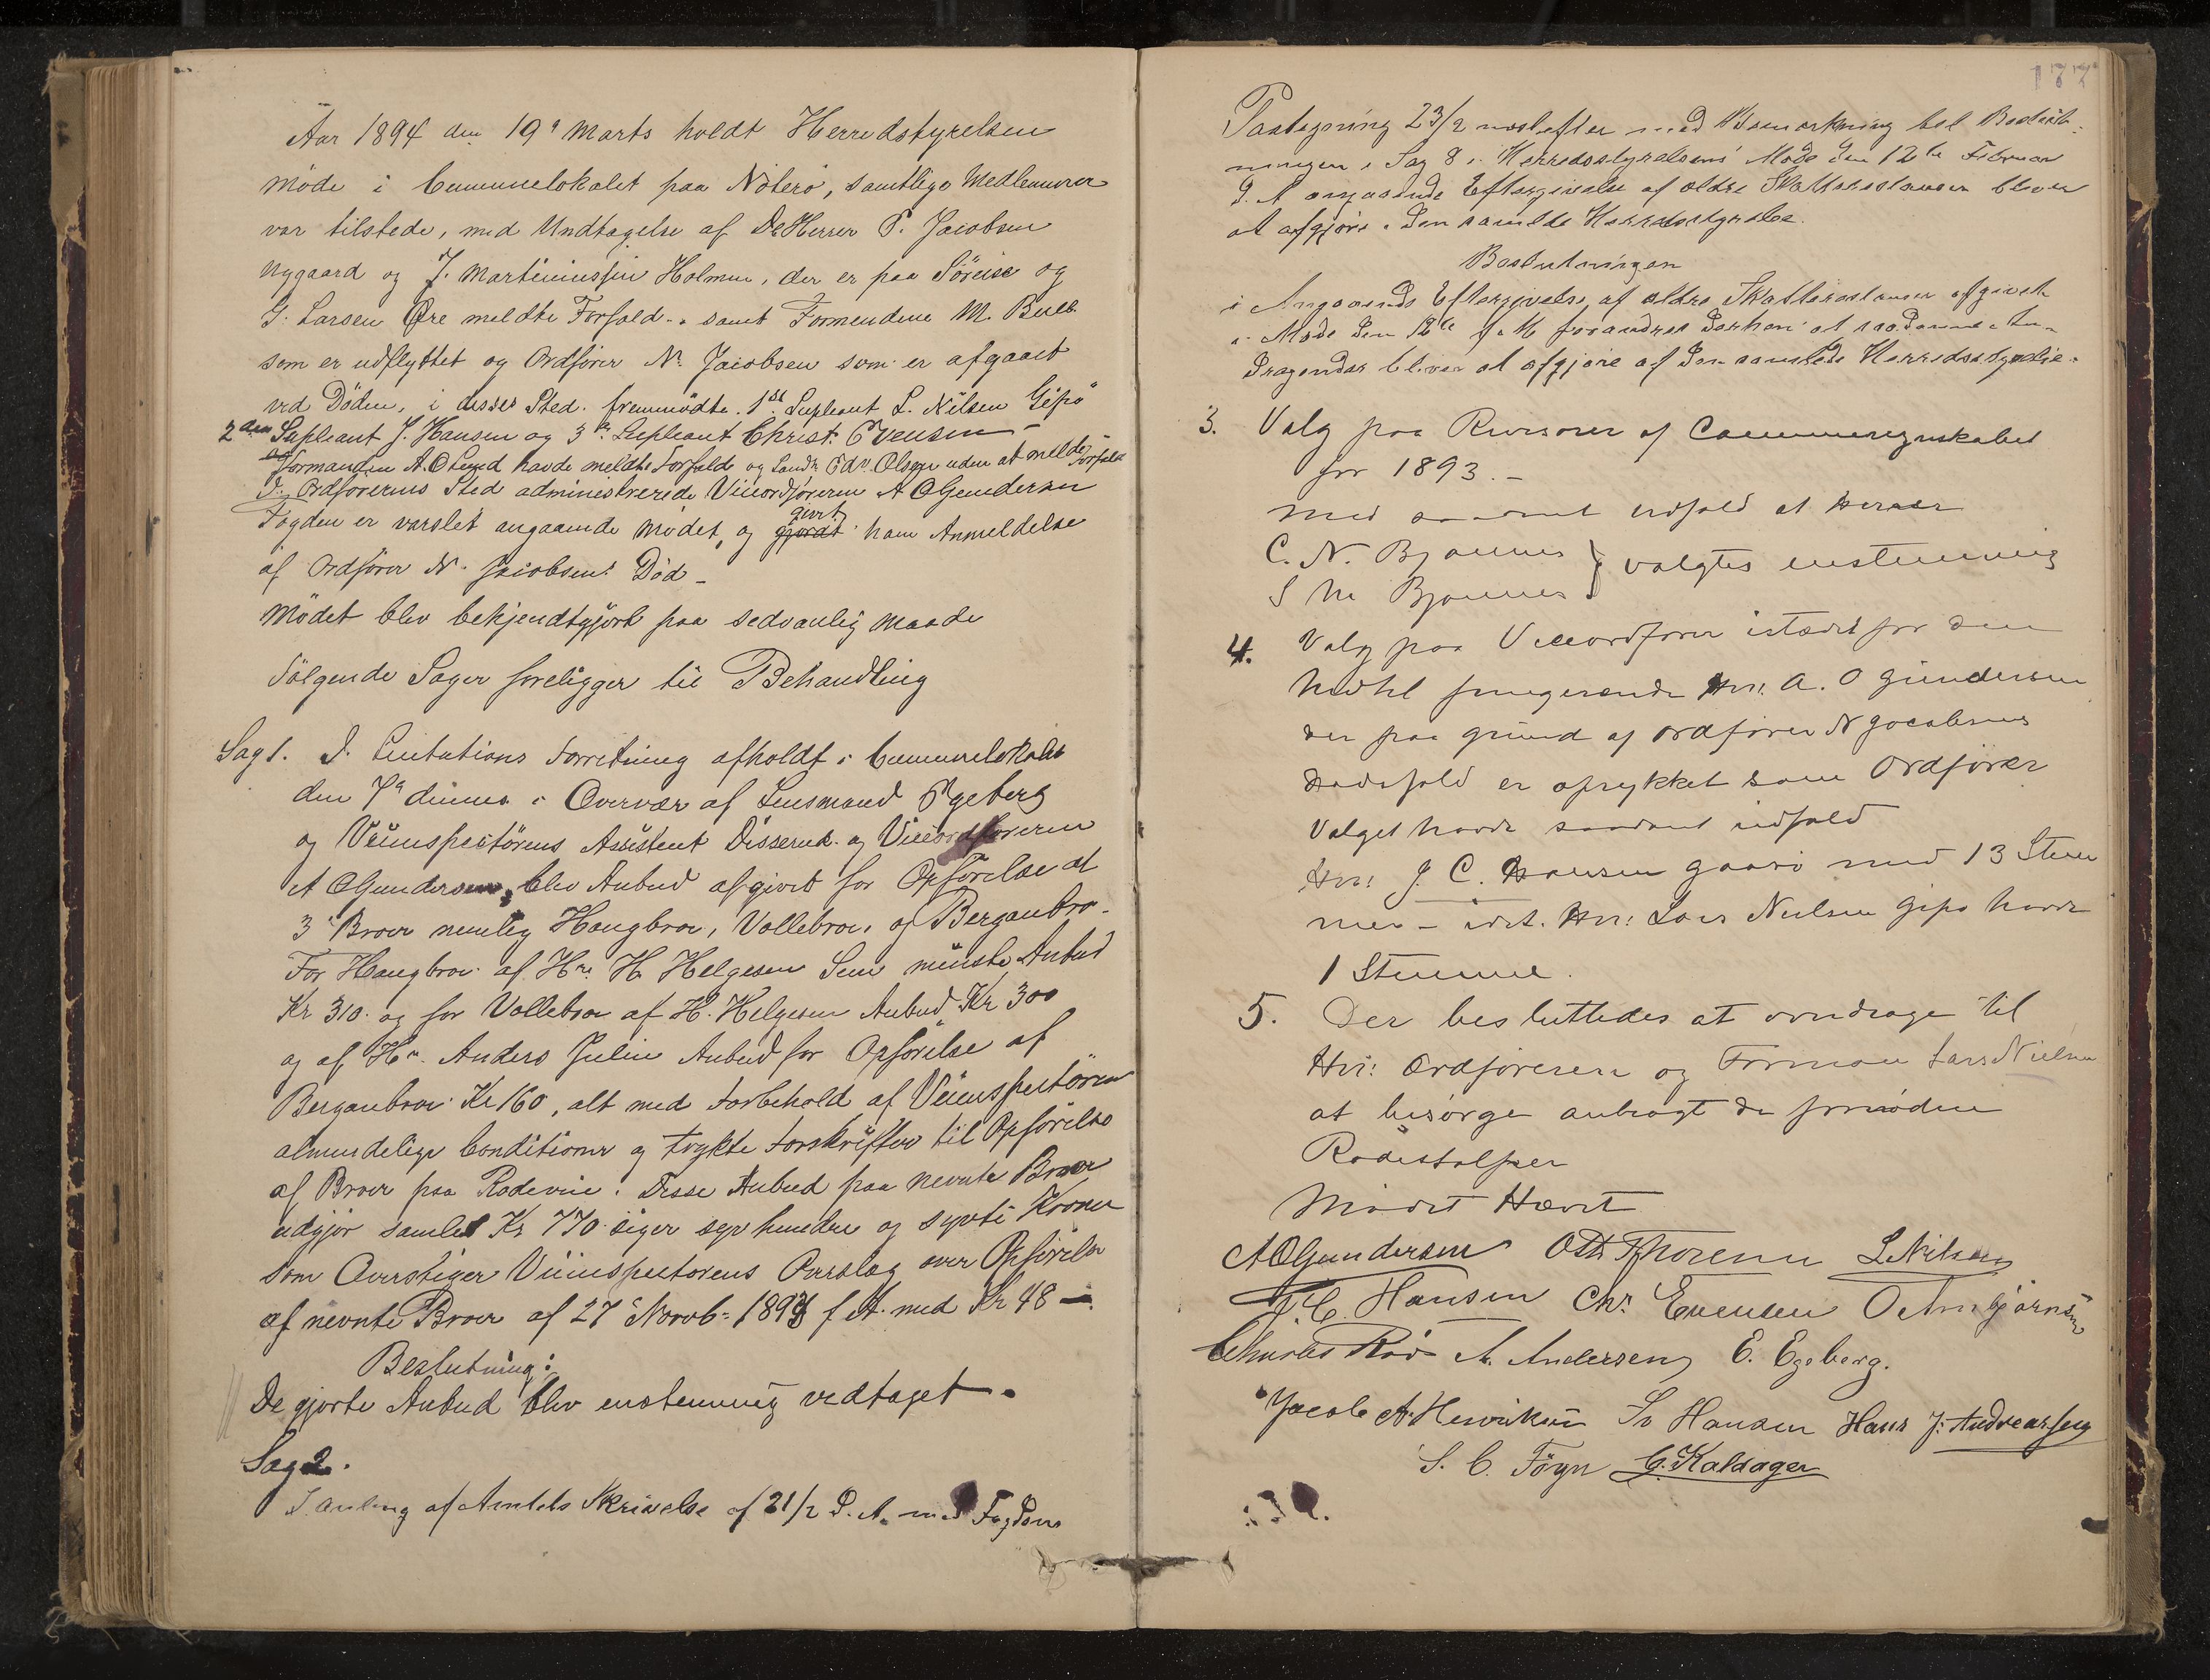 Aar 1894 den 19de Marts holdt Herredstyrelsen
Møde i Communelokalet paa Nøterø, samtlige Medlemmer
var tilstede, med Undtagelse af De Herrer P. Jacobsen
Nygaard og J. Martiniussen Holmen, der er paa Søreise og
G. Larsen Øre meldte Forfald - samt Formendene M. Bull
som er udflyttet og Ordfører N. Jacobsen som er afgaaet
ved Døden, i disses Sted fremmødte 1ste Supleant L. Nilsen Gipø
2den Supleant J. Hansen og 3de Supleant Christ. Evensen -
Formanden A. O Lund havde meldt Forfald og Edv. Olsen uden at melde Forfald
I Ordførerens Sted administrerede Viceordføreren A O Gundersen
Fogden er varslet angaaende Mødet, og gjordt givet ham Anmeldelse
af Ordfører N. Jacobsens Død -
Mødet blev bekjendtgjort paa sedvanlig Maade
Følgende Sager foreligger til Behandling
Sag 1. I Licitations Forretning afholdt i Communelokalet
den 7de dennes i Overvær af Lensmand Egeberg
og Veiinspectørens Assistent Disserud og Viceordføreren
A O Gundersen, blev Anbud afgivet for Opførelse af
3 Broer nemlig Haugbroe, Vollebroe, og Berganbro -
For Haugbroe af Hr. H. Helgesen Sem minste Anbud
Kr 310 og for Vollebroe af H. Helgesen Anbud Kr 300
og af Hr. Anders Julin Anbud for Opførelse af
Berganbroe Kr 160, alt med Forbehold af Veiinspectøren
almindelige Conditioner og trykte Forskrifter til Opførelse
af Broer paa Rodeveie. Disse Anbud paa nevnte Broer
udgjør samlet Kr 770 siger syv hundre og sytti Kroner
som Overstiger Veiinspectorens Overslag over Opførelse
af nevnte Broer af 27de Novb: 1893 f A. med Kr 48 —
Beslutning:
De gjorte Anbud blev enstemmig vedtaget.
Sag 2.
I Anling af Amtets Skrivelse af 21/2 D. A. med Fogdens
177
Paategning 23/2 nestefter med Bemerkning at Beslut-
ningen i Sag 8 i Herredsstyrelsens Møde den 12te Februar
D. A angaaende Eftergivelse af eldre Skatterestanser bliver
at afgjøre i Den samlede Herredsstyrelse.
Beslutningen
i Angaaende Eftergivelse af eldre Skatterestanser afgivet
i Møde Den 12te f M forandres Derhen at saadanne An-
Dragender bliver at afgjøre af Den samlede Herredsstyrelse.
3. Valg paa Revisorer af Communeregnskabet
for 1893. -
med saadant Udfald at Herrer
C. N. Bjønnes } valgtes enstemmig
S M Bjønnes
4. Valg paa Viceordfører istedet for den
hidtil fungerende Hr. A. O Gundersen
der paa grund af ordfører N Jacobsens
Dødsfald er oprykket som Ordfører
Valget havde saadant udfald
Hr: J. C. Hansen Gaasø med 13 Stem
mer - idet Hr: Lars Nielsen Gipø havde
1 Stemme.
5. Der besluttedes at overdrage til
Hr: Ordføreren og Forman Lars Nielsen
at besørge anbragt de fornødne
Rodestolper
Mødet Hævet
A O Gundersen Otto Thoresen L Nilsen
J. C. Hansen Chr. Evensen O Arnbjørnsen
Charles Røv A. Andersen E. Egeberg.
Jacob A. Henriksen Sv Hansen Hans J. Andreassen
S. C. Föyn C. Kaldager